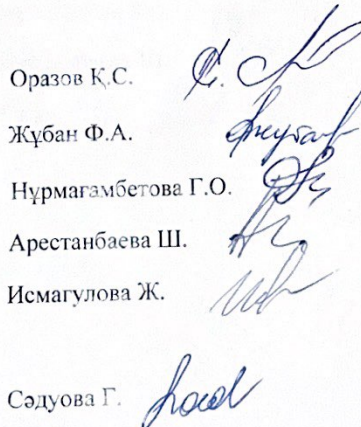 Оразов Қ.С.
Жұбан Ф.А.
Нұрмағамбетова Г.О.
Арестанбаева Ш.
Исмагулова Ж.
Сәдуова Г.